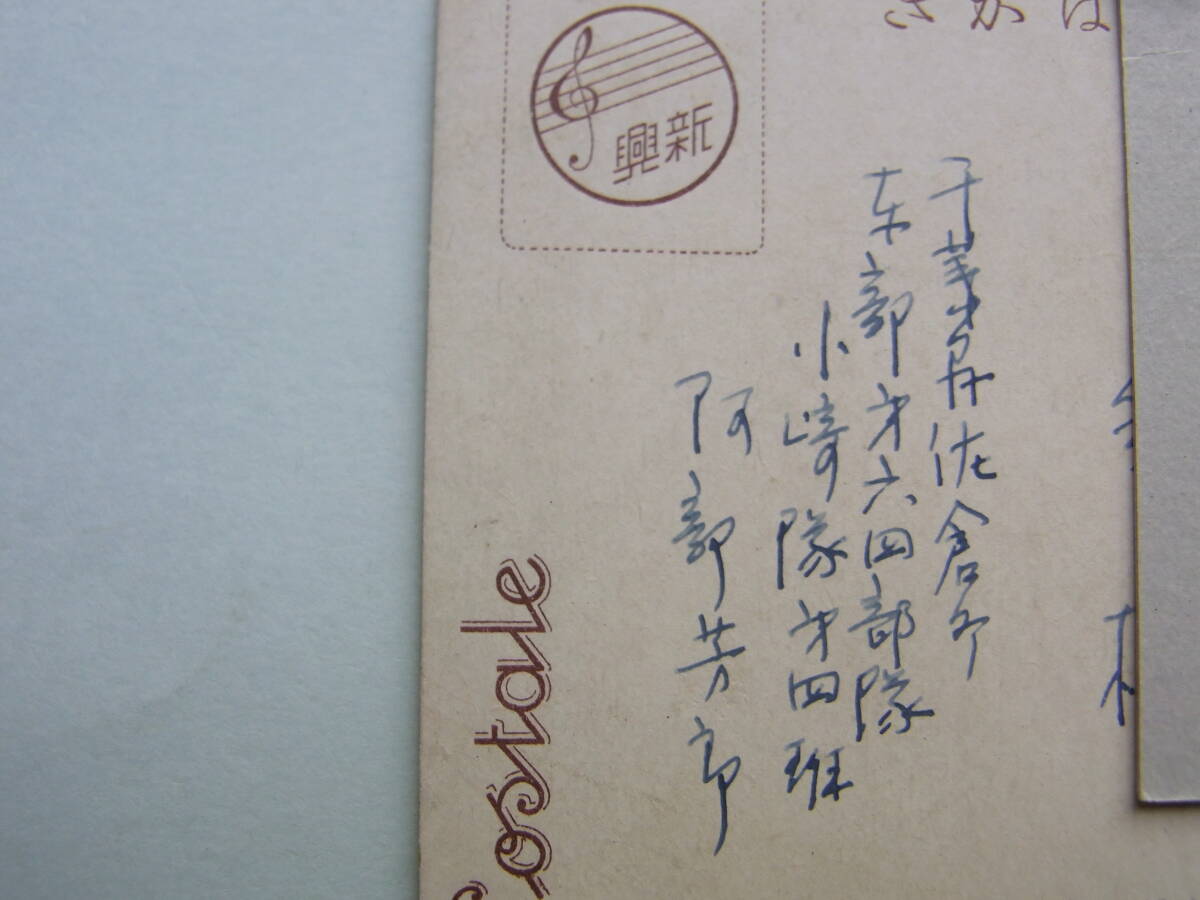 きがは
新興
千葉縣佐倉町
東部第六四部隊
小崎隊第四班
阿部芳郎
Postale